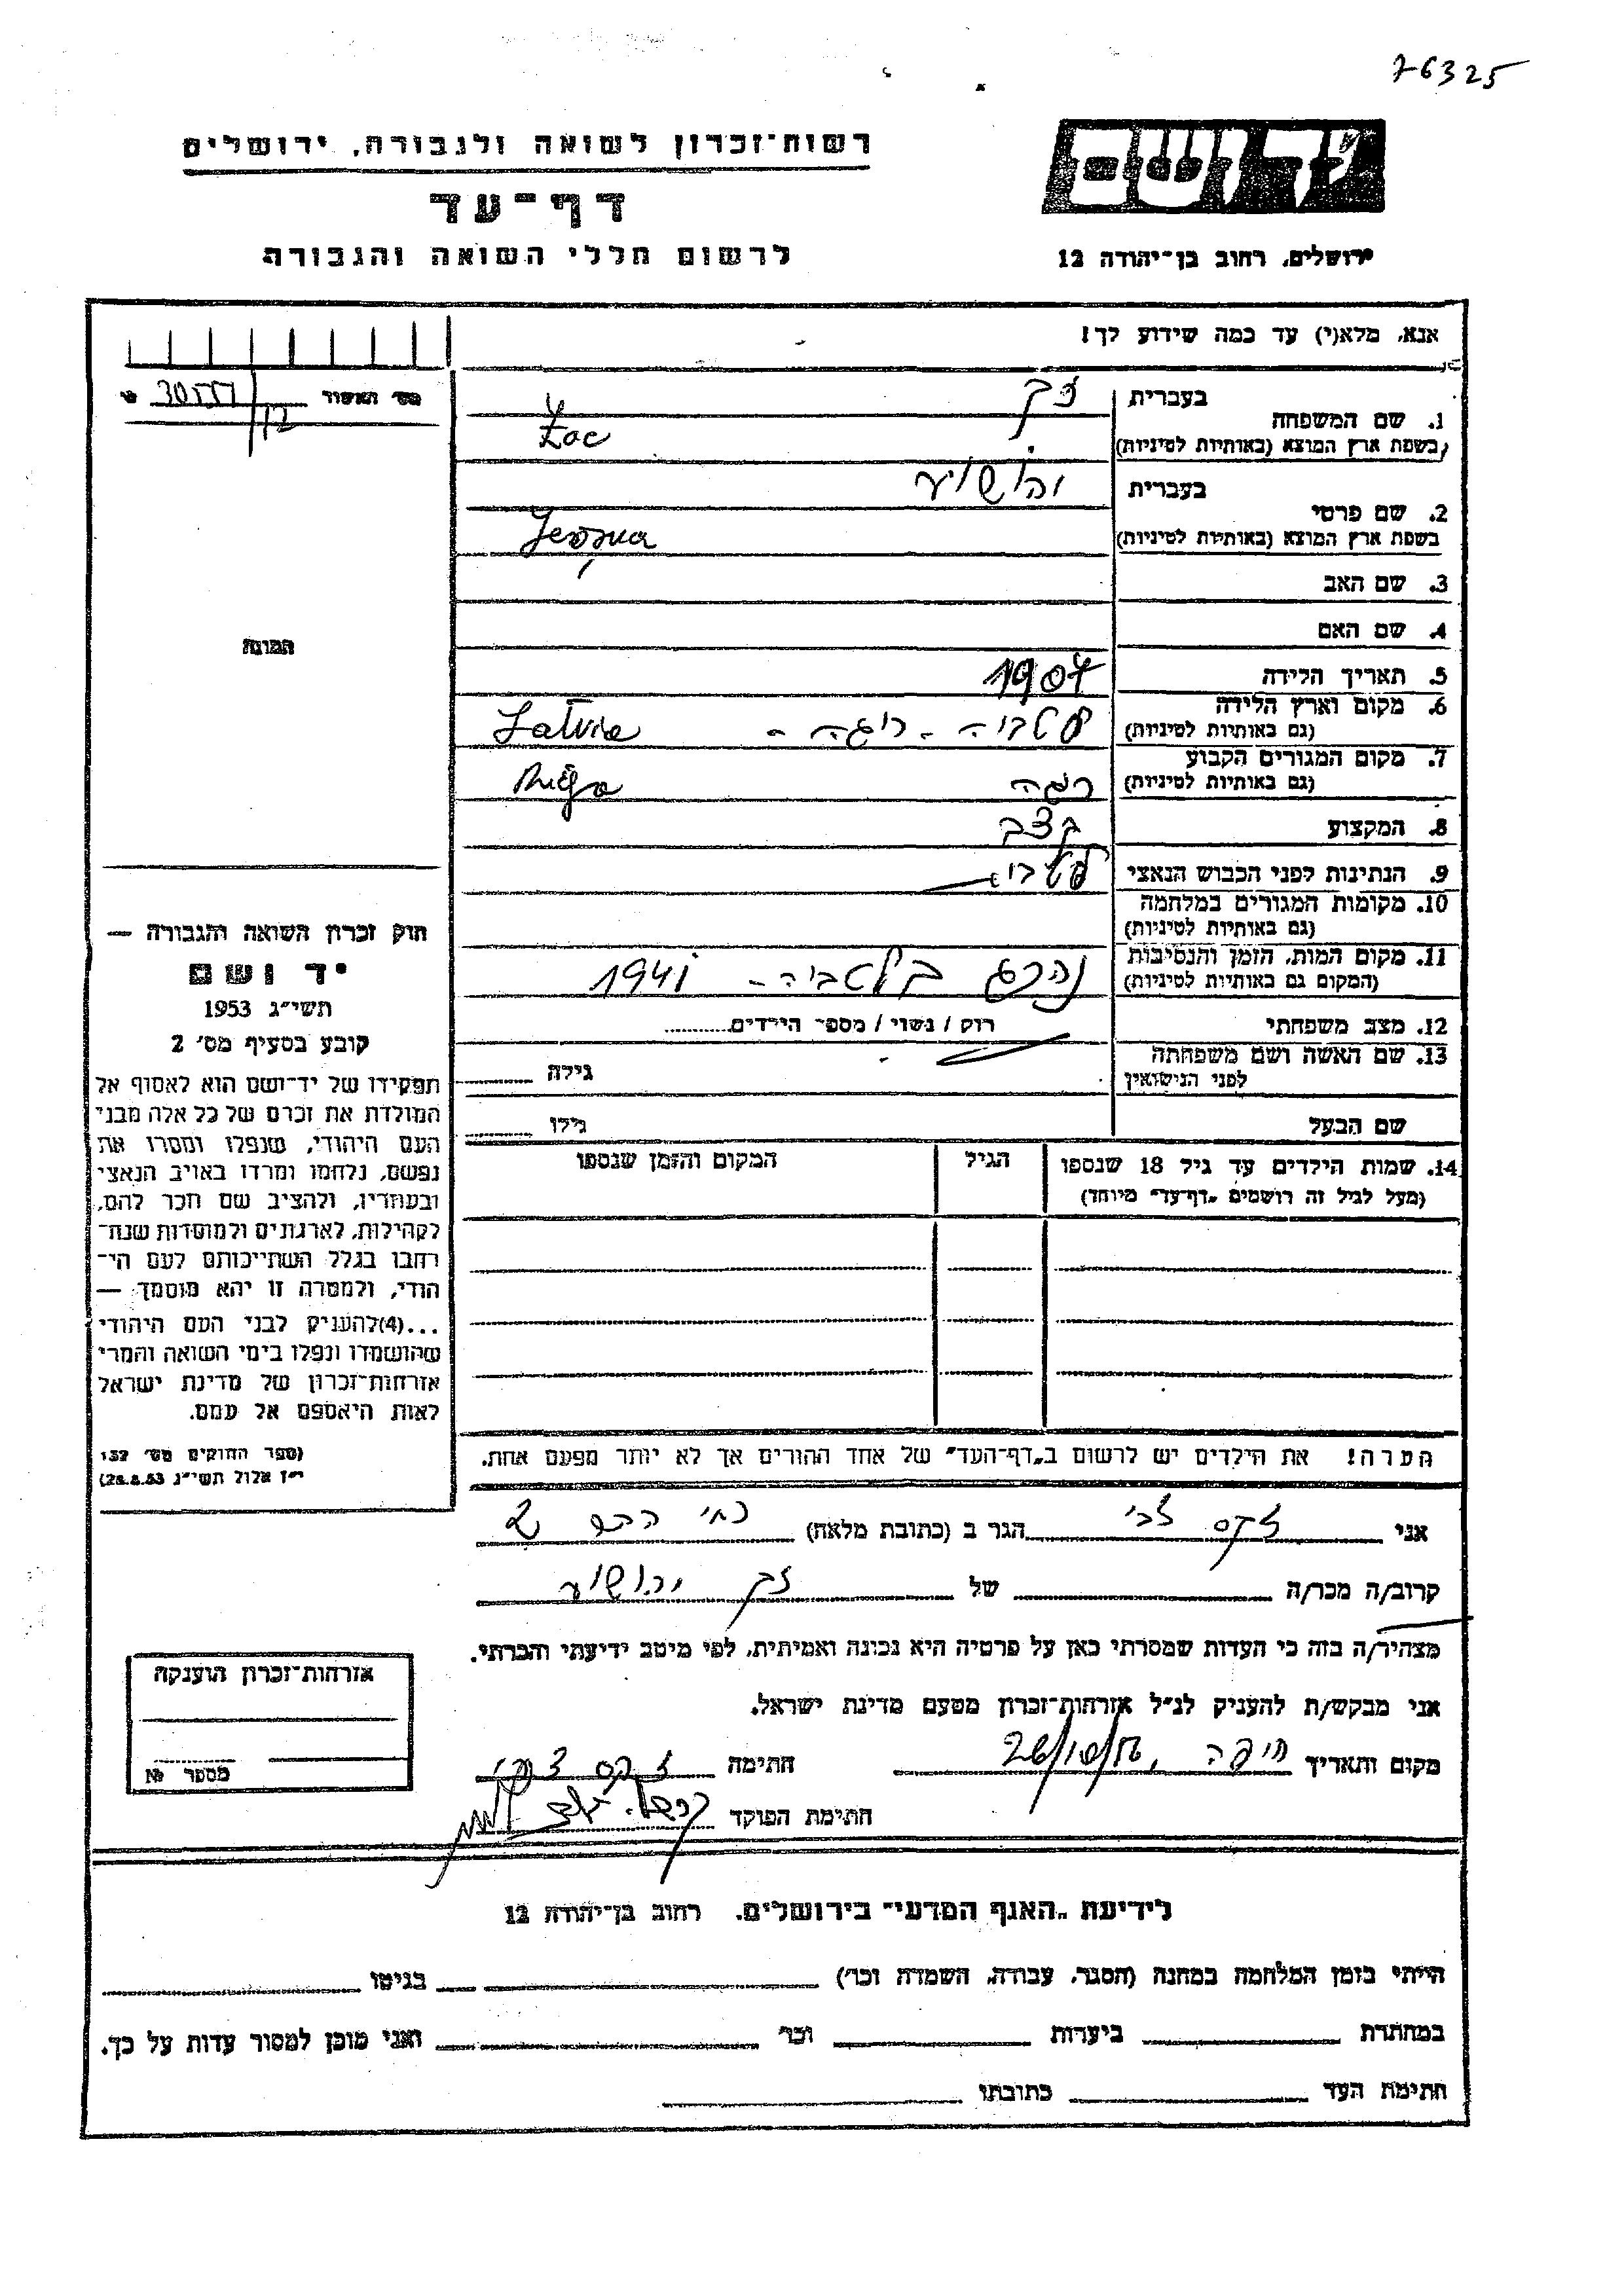 76325
רשות־זכרון לשואה ולגבורה, ירושלים
דף־עד
לרשום חללי השואה והגבורה
ידושם
ירושלים, רחוב בן־יהודה 12
אנא, מלא(י) עד כמה שידוע לך!
מס׳ האשור
בעברית זק
1. שם המשפחה
(בשפת ארץ המוצא (באותיות לטיניות) Zac
בעברית יהושוע
2. שם פרטי
בשפת ארץ המוצא (באותיות לטיניות)
3. שם האב
4. שם האם
5. תאריך הלידה 1907
6. מקום וארץ הלידה לטביה - ריגה - Latvia
(גם באותיות לטיניות)
7. מקום המגורים הקבוע ריגה Riga
(גם באותיות לטיניות)
8. המקצוע קצב
9. הנתינות לפני הכבוש הנאצי לטבי
10. מקומות המגורים במלחמה
(גם באותיות לטיניות)
11. מקום המות, הזמן והנסיבות נהרג בלטביה - 1941
(המקום גם באותיות לטיניות)
12. מצב משפחתי רווק / נשוי / מספר הילדים
13. שם האשה ושם משפחתה
לפני הנישואין גילה
שם הבעל גילו
14. שמות הילדים עד גיל 18 שנספו הגיל המקום והזמן שנספו
(מעל לגיל זה רושמים „דף־עד" מיוחד)
הערה! את הילדים יש לרשום ב„דף־העד" של אחד ההורים אך לא יותר מפעם אחת.
התמונה
חוק זכרון השואה והגבורה —
יד ושם
תשי״ג 1953
קובע בסעיף מס׳ 2
תפקידו של יד־ושם הוא לאסוף אל
המולדת את זכרם של כל אלה מבני
העם היהודי, שנפלו ומסרו את
נפשם, נלחמו ומרדו באויב הנאצי
ובעוזריו, ולהציב שם וזכר להם,
לקהילות, לארגונים ולמוסדות שנח־
רבו בגלל השתייכותם לעם הי־
הודי, ולמטרה זו יהא מוסמך —
...(4) להעניק לבני העם היהודי
שהושמדו ונפלו בימי השואה והמרי
אזרחות־זכרון של מדינת ישראל
לאות היאספם אל עמם.
(ספר החוקים מס׳ 132
י״ז אלול תשי״ג 28.8.53)
אני זקס צבי הגר ב (כתובת מלאה)
קרוב/ה מכר/ה של זק יהושוע
מצהיר/ה בזה כי העדות שמסרתי כאן על פרטיה היא נכונה ואמיתית, לפי מיטב ידיעתי והכרתי.
אני מבקש/ת להעניק לנ״ל אזרחות־זכרון מטעם מדינת ישראל.
מקום ותאריך חיפה, חתימה זקס צבי
חתימת הפוקד
אזרחות־זכרון הוענקה
מספר №
לידיעת „האגף המדעי" בירושלים, רחוב בן־יהודה 12
הייתי בזמן המלחמה במחנה (הסגר, עבודה, השמדה וכו׳) בגיטו
במחתרת ביערות וכו׳ ואני מוכן למסור עדות על כך.
חתימת העד כתובתו